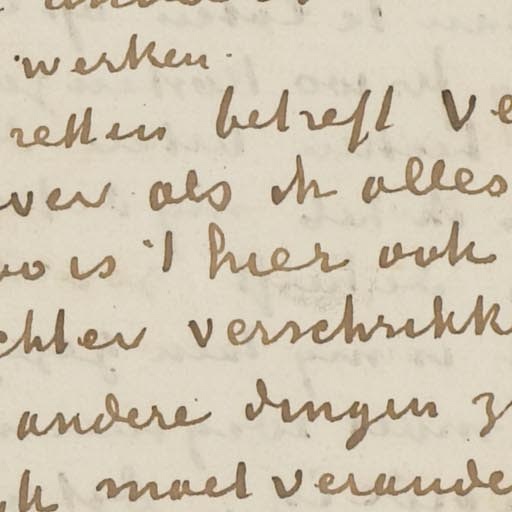 werken.
retten betreft ve
ver als ik alles
oo is 't hier ook
chter verschrikk
andere dingen z
ik moet verande